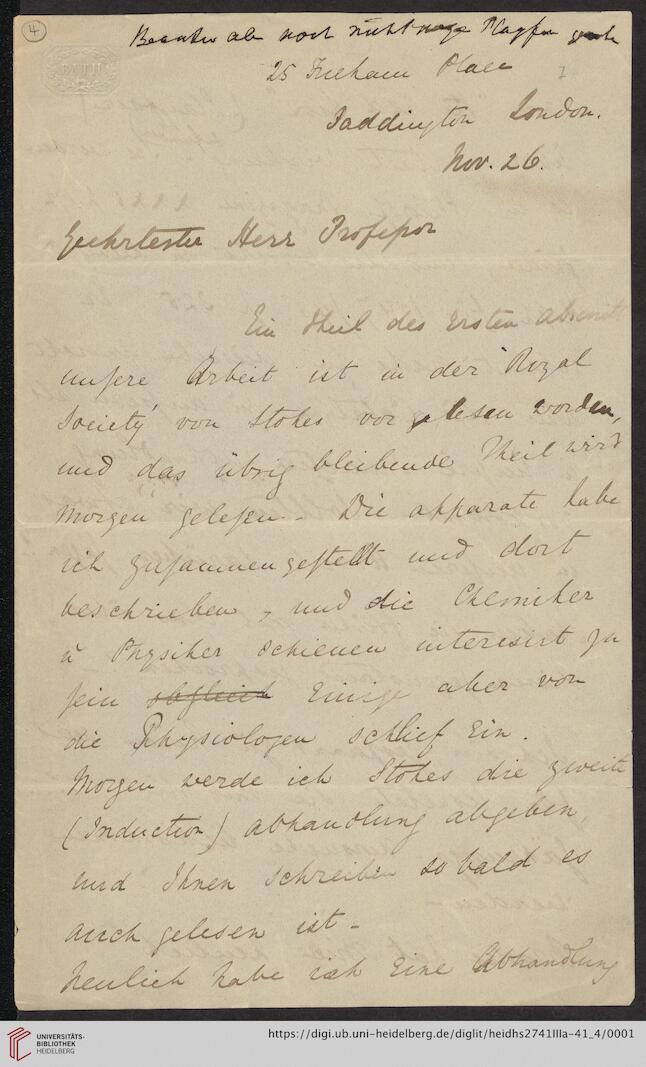 4
BATH
25 Place
Paddington London.
Nov. 26.
Geehrtester Herr Profeſsor
Ein Theil des ersten Abschnitt
unſere Arbeit ist in der "Royal
Society' von Stokes vor gelesen worden,
und das übrig bleibende Theil wird
Morgen geleſen. Die apparate habe
ich zuſammengeſtellt und dort
beschrieben, und die Chemiker
u Physiker schienen interesirt zu
ſein obgleich Einige aber von
die Physiologen schlief Ein.
Morgen werde ich Stokes die zweite
(Induction) abhandlung abgeben,
und Ihnen schreiben so bald es
auch gelesen ist -
Neulich habe ich Eine Abhandlung
UNIVERSITÄTS-
BIBLIOTHEK
HEIDELBERG
https://digi.ub.uni-heidelberg.de/diglit/heidhs2741IIIa-41_4/0001